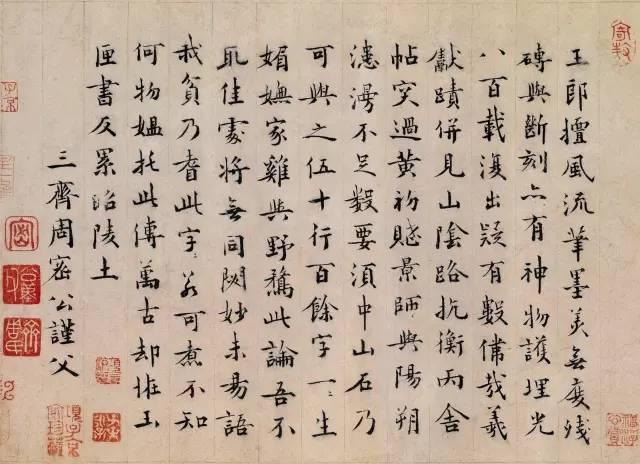 王郎擅風流筆墨美無度殘
磚與斷刻亦有神物護埋光
八百載復出疑有數備哉羲
獻蹟併見山陰路抗衡兩舍
帖突過黃初賦景師與陽朔
漶漫不足數要須中山石乃
可與之伍十行百餘字一一生
媚嫵家雞與野鶩此論吾不
取佳處將無同閟妙未易語
我貧乃耆此字可煮不知
何物媼托此傳萬古却玉
匣書反累昭陵土
三齊周密公謹父